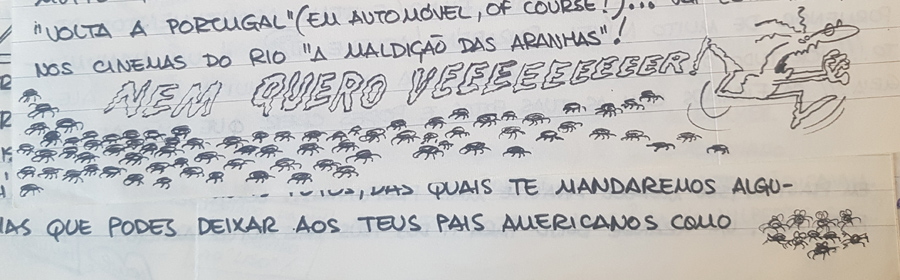 "VOLTA A PORTUGAL" (EM AUTOMÓVEL, OF COURSE!)...
NOS CINEMAS DO RIO "A MALDIÇÃO DAS ARANHAS"!
NEM QUERO VEEEEEEEEEER!
DAS QUAIS TE MANDAREMOS ALGU-
QUE PODES DEIXAR AOS TEUS PAIS AMERICANOS COMO